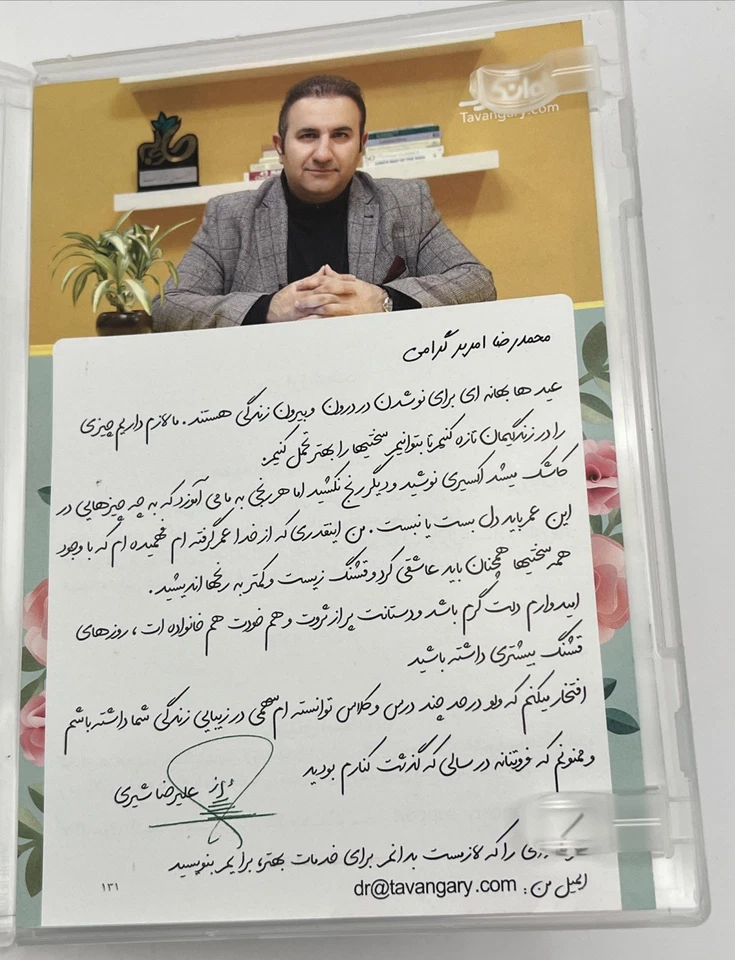 Tavangary.com
محمدرضا امربر گرامی
عید ها بهانه ای برای نو شدن در درون و بیرون زندگی هستند. ما لازم داریم چیزی
را در زندگیمان تازه کنیم تا بتوانیم سختیها را بهتر تحمل کنیم.
کاشک میشد اکسیری نوشید و دیگر رنج نکشید اما هر رنجی به ما می آموزد که به چه چیزهایی در
این عمر باید دل بست یا نبست. من اینقدری که از خدا عمر گرفته ام فهمیده ام که با وجود
همه سختیها همچنان باید عاشقی کرد و قشنگ زیست و کمتر به رنجها اندیشید.
امیدوارم دلت گرم باشد و دستانت پر از ثروت و هم خودت هم خانواده ات، روزهای
قشنگ بیشتری داشته باشید
افتخار میکنم که ولو در حد چند درس و کلاس توانسته ام سهمی در زیبایی زندگی شما داشته باشم
و ممنونم که فروتنانه در سالی که گذشت کنارم بودید
علیرضا شیری
را که لازمست بدانم برای خدمات بهتر، برایم بنویسید
ایمیل من: dr@tavangary.com
۱۳۱